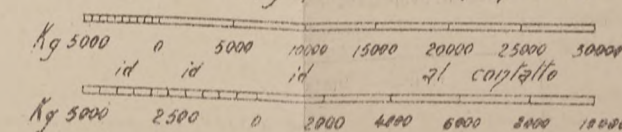 Kg 5000 0 5000 10000 15000 20000 25000 30000
id id id al contatto
Kg 5000 2500 0 2000 4000 6000 8000 10000